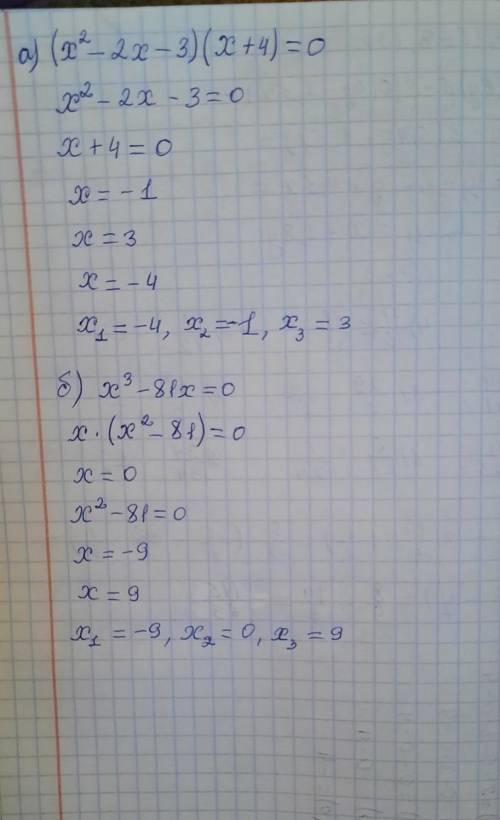 а) (x² − 2x − 3)(x + 4) = 0
x² − 2x − 3 = 0
x + 4 = 0
x = −1
x = 3
x = −4
x₁ = −4, x₂ = −1, x₃ = 3
б) x³ − 81x = 0
x · (x² − 81) = 0
x = 0
x² − 81 = 0
x = −9
x = 9
x₁ = −9, x₂ = 0, x₃ = 9